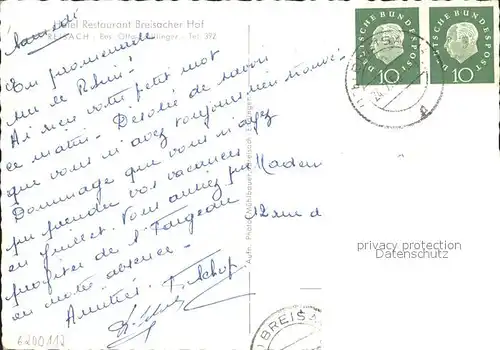 Samedi
Hotel Restaurant Breisacher Hof
BREISACH
Tel. 392
En promenade
sur le Rhin!
Ai bien votre petit mot
ce matin. Désolée de savoir
que vous n'avez toujours rien trouvé.
Dommage que vous n'ayez
pu prendre vos vacances
en juillet. Vous auriez pu
profiter de l'
en notre absence.
Amitiés.
Madem
12 rue d
DEUTSCHE BUNDESPOST
10
DEUTSCHE BUNDESPOST
10
BREISA
privacy protection
Datenschutz
6200112